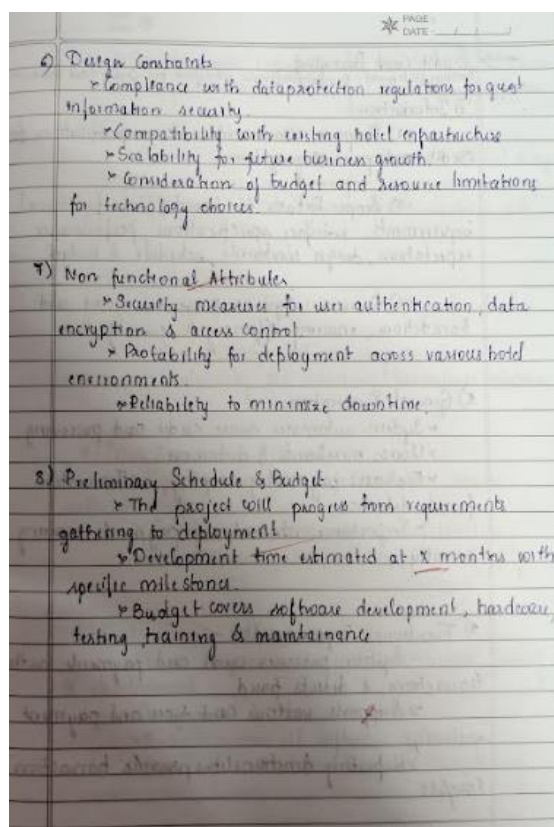 PAGE
DATE
6) Design Constraints
* Compliance with dataprotection regulations for guest
information security.
* Compatibility with existing hotel infrastructure
* Scalability for future business growth.
* Consideration of budget and resource limitations
for technology choices.
7) Non functional Attributes
* Security measures for user authentication, data
encryption & access control
* Protability for deployment across various hotel
environments.
* Reliability to minimize downtime.
8) Preliminary Schedule & Budget
* The project will progress from requirements
gathering to deployment
* Development time estimated at X months with
specific milestones.
* Budget covers software development, hardware,
testing, training & maintainance